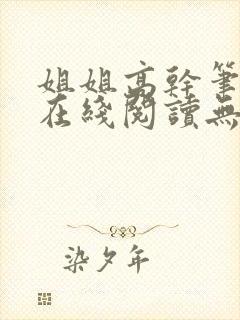 姐姐高幹筆
在綫閱讀無
染夕年